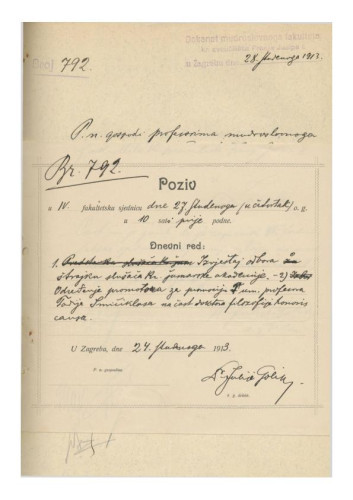 Broj 792.
Dekanat mudroslovnoga fakulteta
u Zagrebu
28. studenoga 1913.
P. n. gospodi profesorima mudroslovnoga
Br. 792.
Poziv
u IV. fakultetsku sjednicu dne 27. studenoga (u četvrtak) o. g.
u 10 sati prije podne.
Dnevni red:
1. Izvještaj odbora
štrajku slušača šumarske akademije. - 2)
Određenje promotora za promociju um. profesora
Tadije Smičiklasa na čast doktora filozofije honoris
causa.
U Zagrebu, dne 24. studenoga 1913.
P. n. gospodinu
Dr. Julije Golik
t. g. dekan.